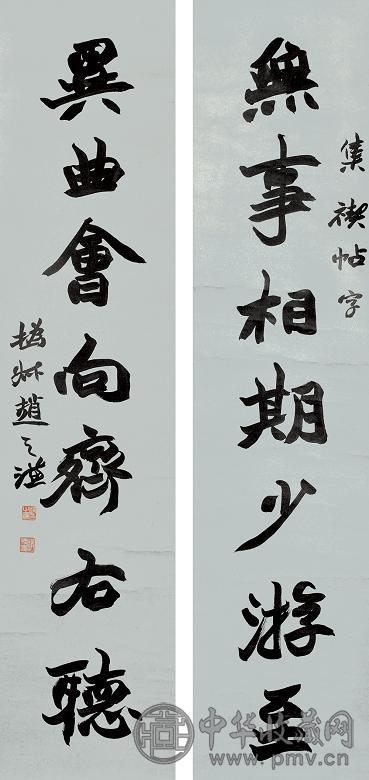 集禊帖字
無事相期少游至
異曲會向齊右聽
撝叔趙之謙
中华收藏网
www.pmv.cn